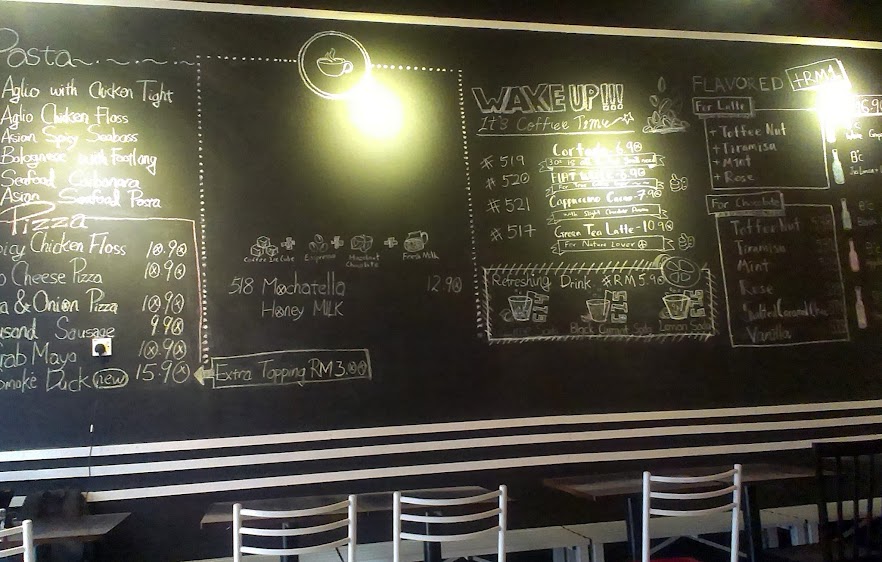 Pasta
Aglio with Chicken Tight
Aglio Chicken Floss
Asian Spicy Seabass
Bolognese with Footlong
Seafood Carbonara
Asian Seafood Pasta
Pizza
Spicy Chicken Floss 10.90
Cheese Pizza 10.90
& Onion Pizza 10.90
Sausage 9.90
Crab Mayo 10.90
Smoke Duck new 15.90
Extra Topping RM3.00
Coffee Ice Cube + Espresso + Hazelnut Chocolate + Fresh Milk
518 Mochatella 12.90
Honey MILK
WAKE UP!!!
It's Coffee Time
#519 Cortado - 6.90
#520 FLAT White - 6.90
#521 Cappuccino Cacao - 7.90
with Slight Chocolate Aroma
#517 Green Tea Latte - 10.90
For Nature Lover
Refreshing Drink #RM5.90
Black Currant Soda
Lemon Soda
FLAVORED +RM1
For Latte
+ Toffee Nut
+ Tiramisa
+ Mint
+ Rose
For Chocolate
Toffee Nut
Tiramisu
Mint
Rose
Vanilla